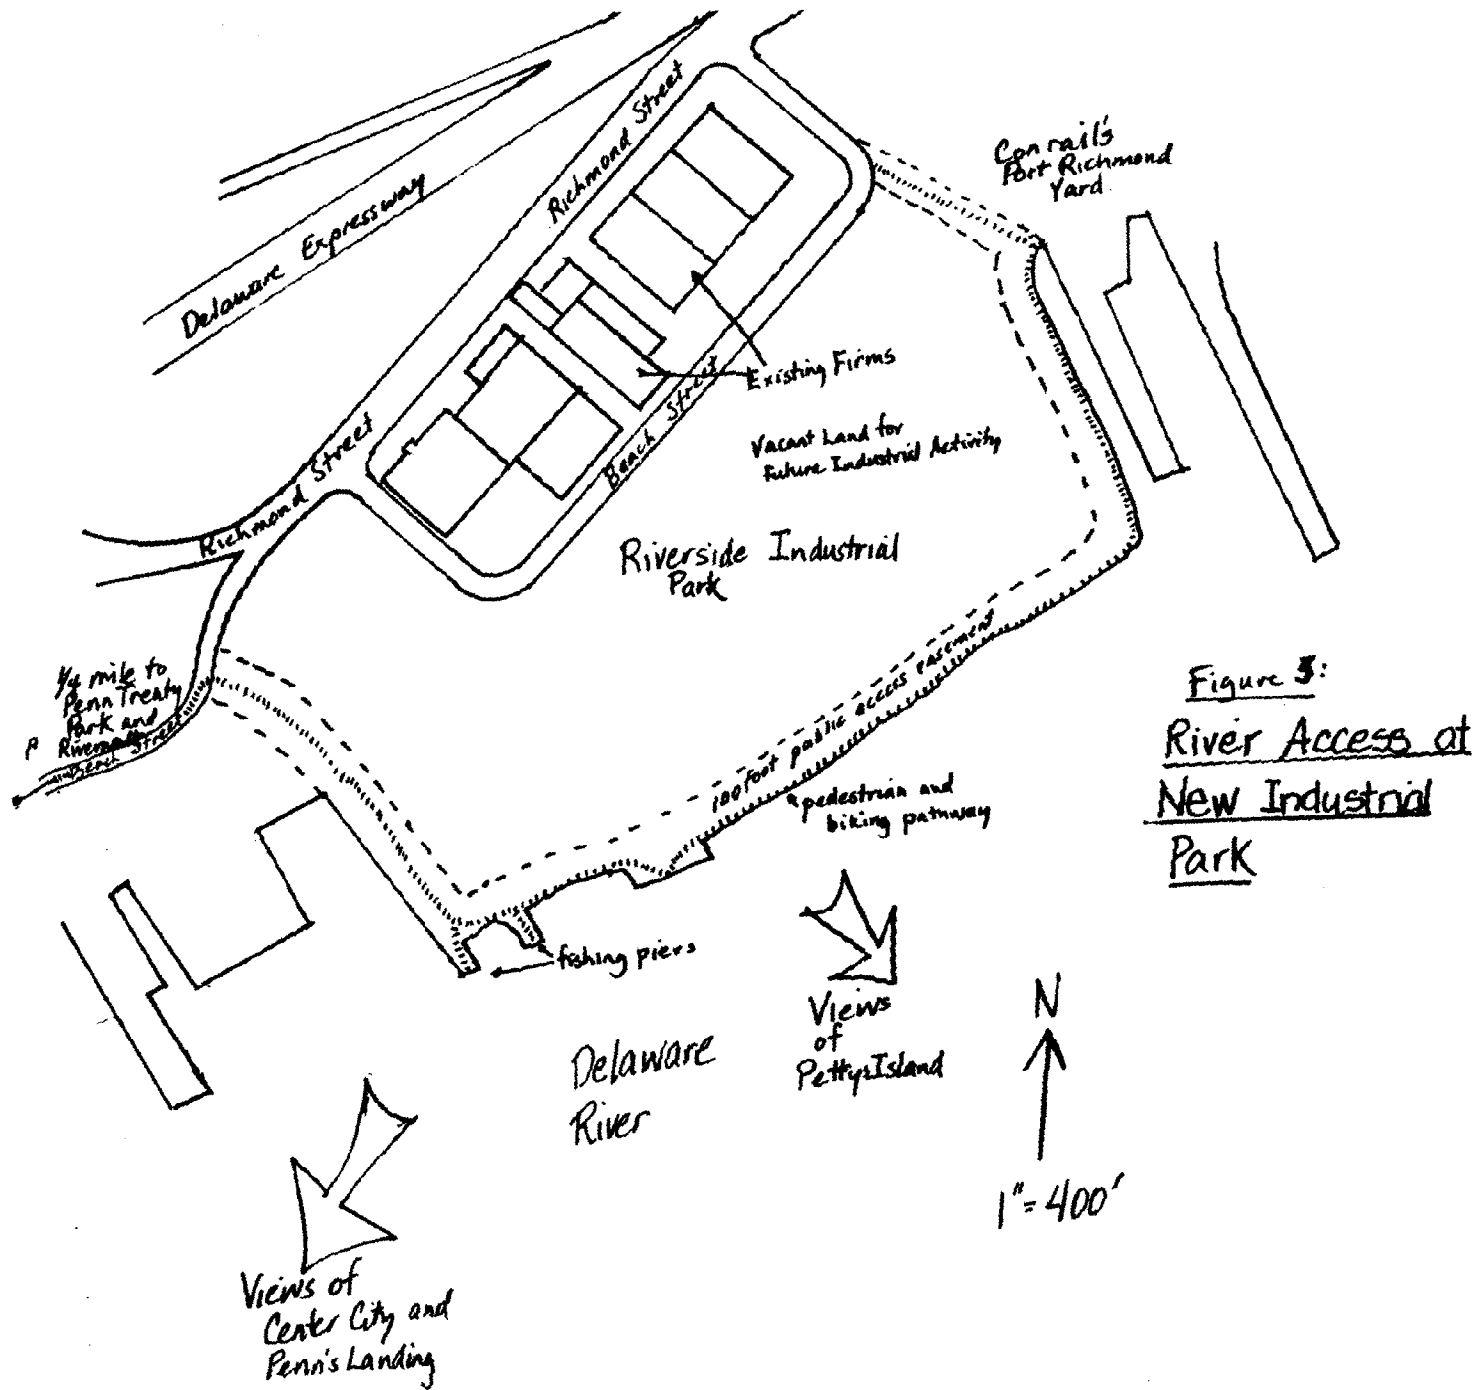 Richmond Street
Delaware Expressway
Conrail's
Port Richmond
Yard
Existing Firms
Beach Street
Vacant Land for
Future Industrial Activity
Richmond Street
Riverside Industrial
Park
1/4 mile to
Penn Treaty
Park and
Beach Street
100 foot public access easement
pedestrian and
biking pathway
Figure 5:
River Access at
New Industrial
Park
fishing piers
Views
of
Pettys Island
N
1"=400'
Delaware
River
Views of
Center City and
Penn's Landing